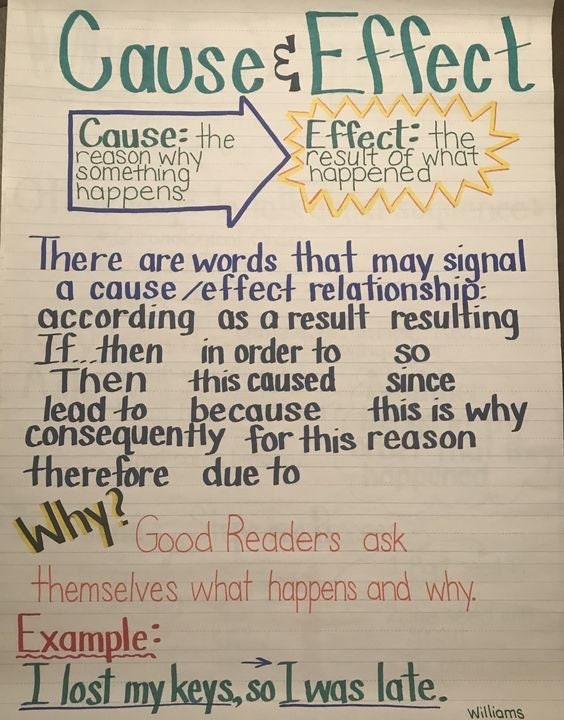 Cause & Effect
Cause: the
reason why
something
happens.
Effect: the
result of what
happened
There are words that may signal
a cause/effect relationship:
according as a result resulting
If...then in order to so
Then this caused since
lead to because this is why
consequently for this reason
therefore due to
Why? Good Readers ask
themselves what happens and why.
Example:
I lost my keys, so I was late.
Williams